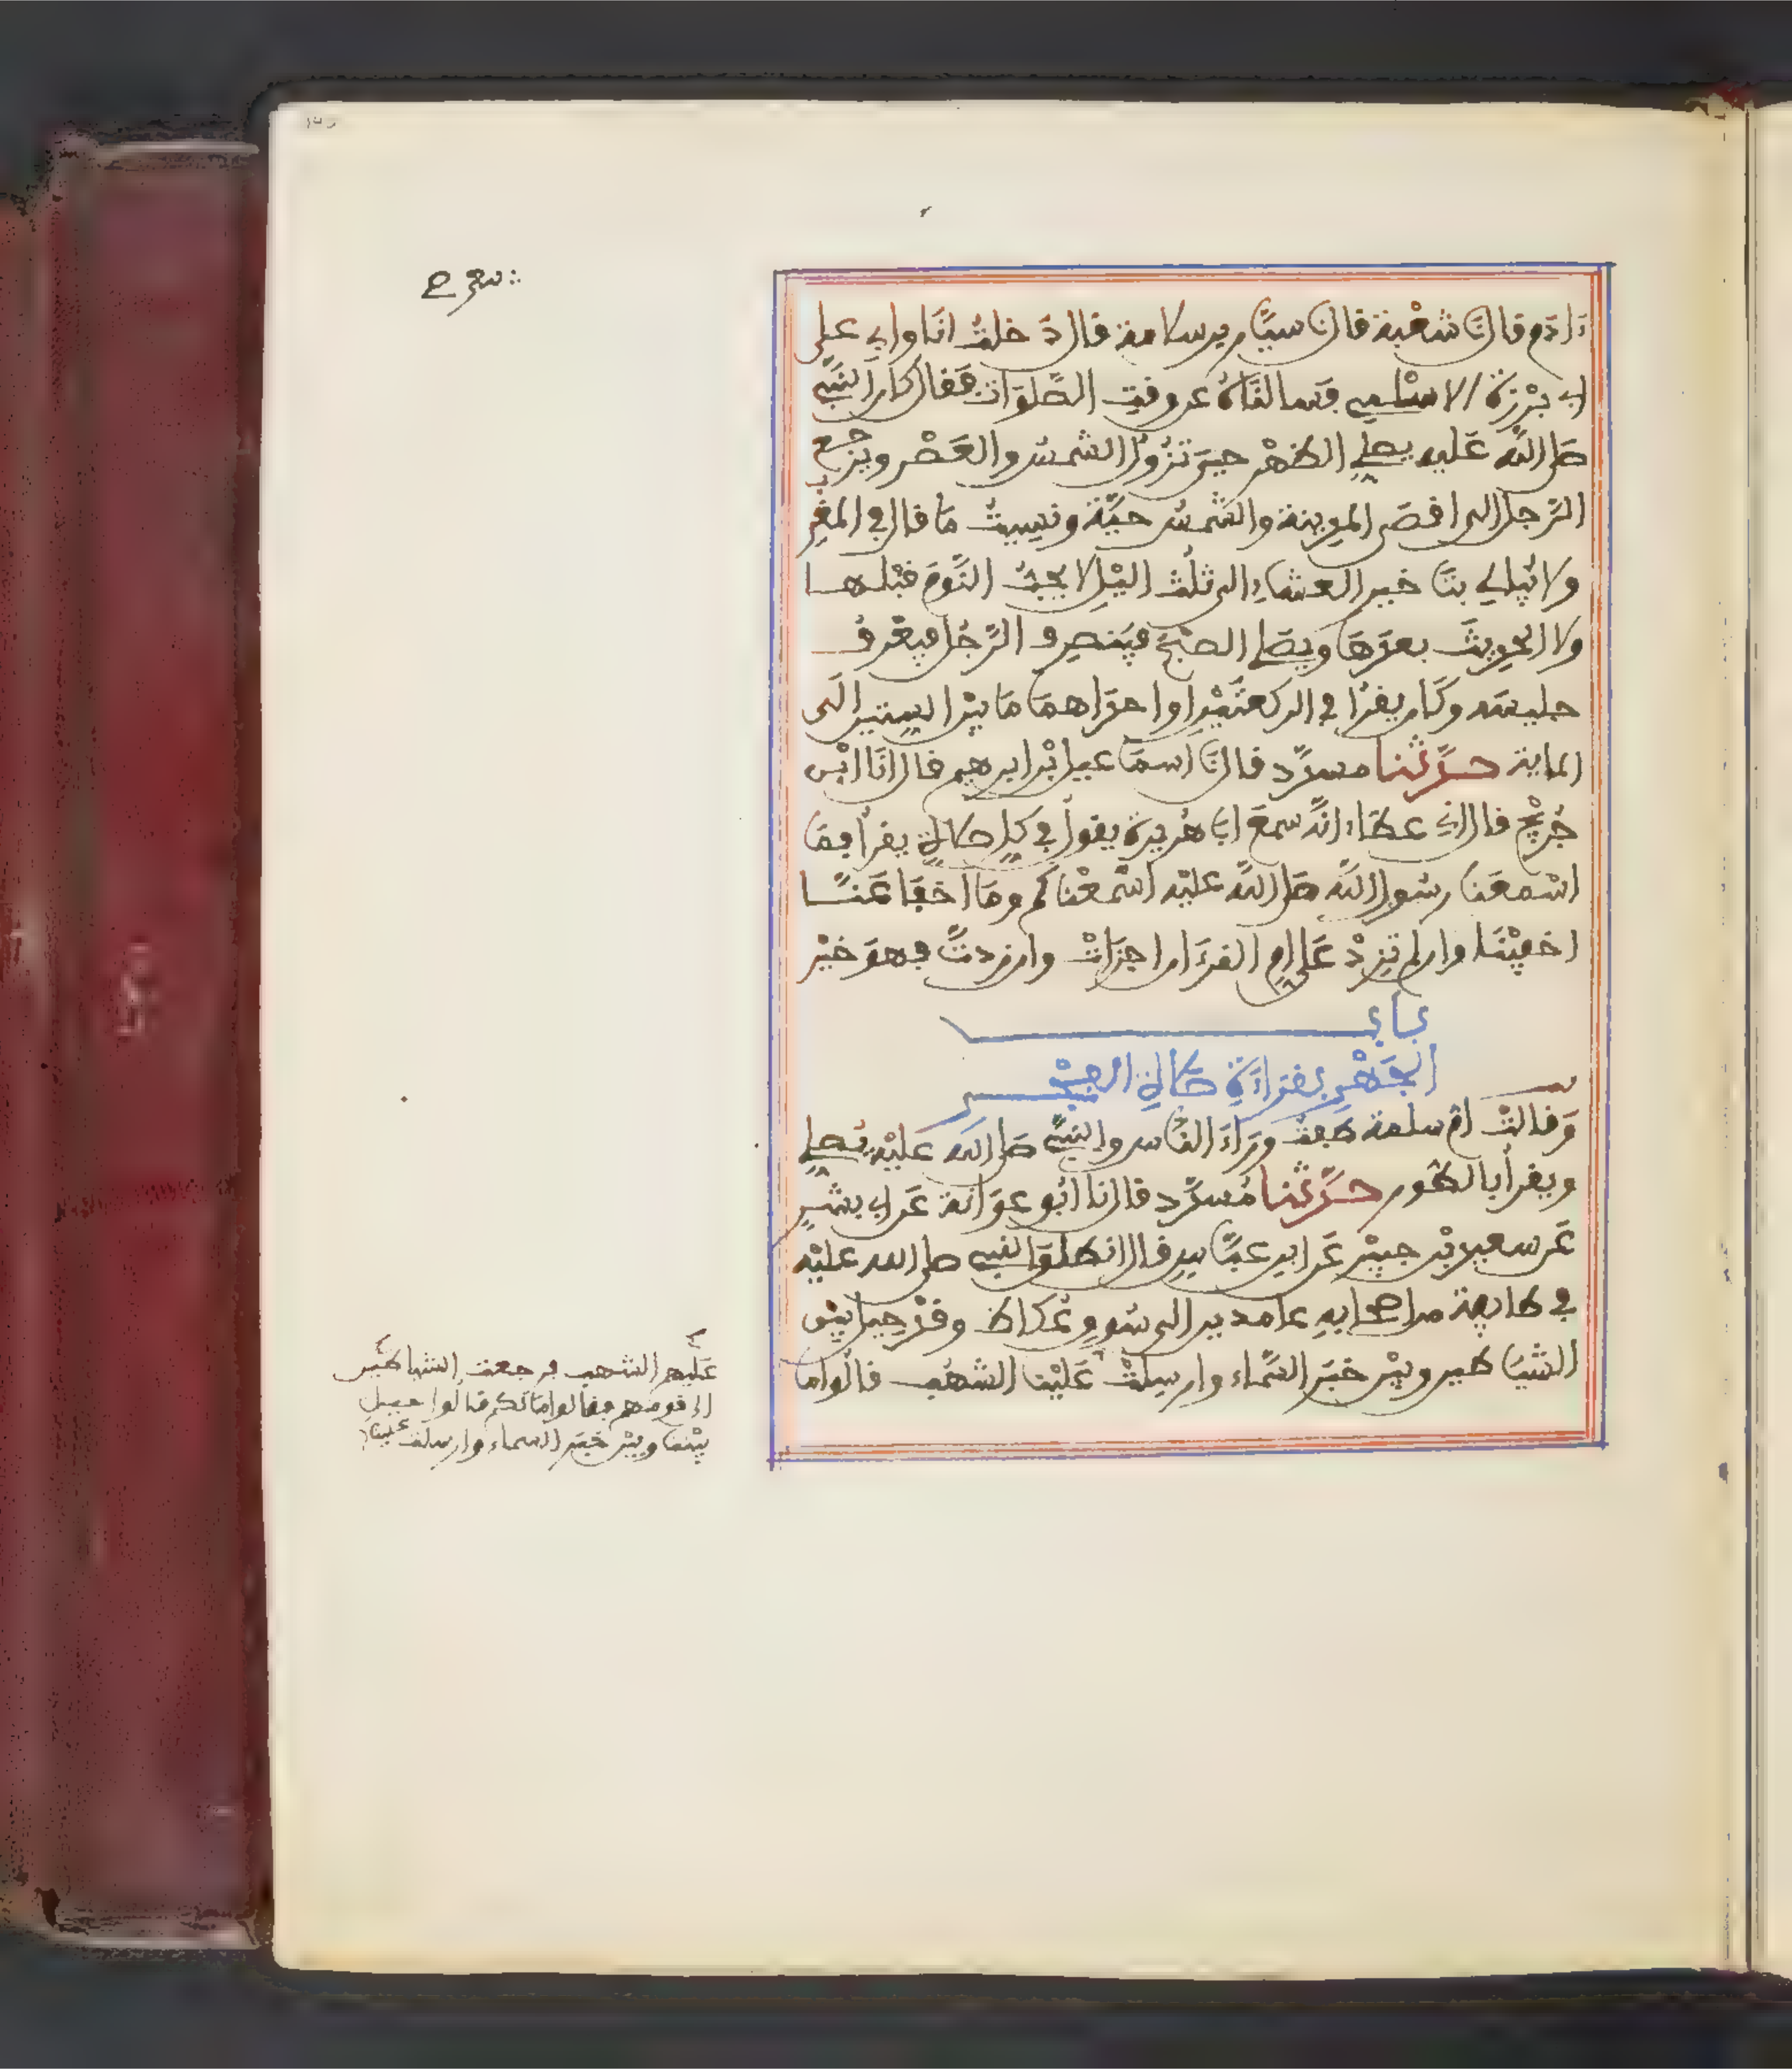 ءادم قال نا شعبة قال نا سيار بن سلامة قال دخلت انا وابي على
ابي برزة الاسلمي فسالناه عن وقت الصلوات فقال كان النبي
صلى الله عليه يصلي الظهر حين تزول الشمس والعصر ويرجع
الرجل الى اقصى المدينة والشمس حية ونسيت ما قال في المغرب
ولا يبالي بتاخير العشاء الى ثلث اليل لا يحب النوم قبلها
ولا الحديث بعدها ويصلي الصبح فينصرف الرجل فيعرف
جليسه وكان يقرا في الركعتين او احداهما ما بين الستين الى
الماية حدثنا مسدد قال نا اسماعيل بن ابرهيم قال انا ابن
جريج قال اني عطاء انه سمع ابا هريرة يقول في كل صلاة يقرأ فما
اسمعنا رسول الله صلى الله عليه اسمعناكم وما اخفا عنا
اخفينا وان لم تزد على ام القرءان اجزات وان زدت فهو خير
باب
الجهر بقراءة صلاة الصبح
وقالت ام سلمة طفت وراء الناس والنبي صلى الله عليه يصلي
ويقرأ بالطور حدثنا مسدد قال نا ابو عوانة عن ابي بشر
عن سعيد بن جبير عن ابن عباس قال انطلق النبي صلى الله عليه
في طايفة من اصحابه عامدين الى سوق عكاظ وقد حيل بين
الشياطين وبين خبر السماء وارسلت علينا الشهب قالوا ما
عليهم الشهب فرجعت الشياطين
الى قومهم فقالوا ما لكم قالوا حيل
بيننا وبين خبر السماء وارسلت علينا